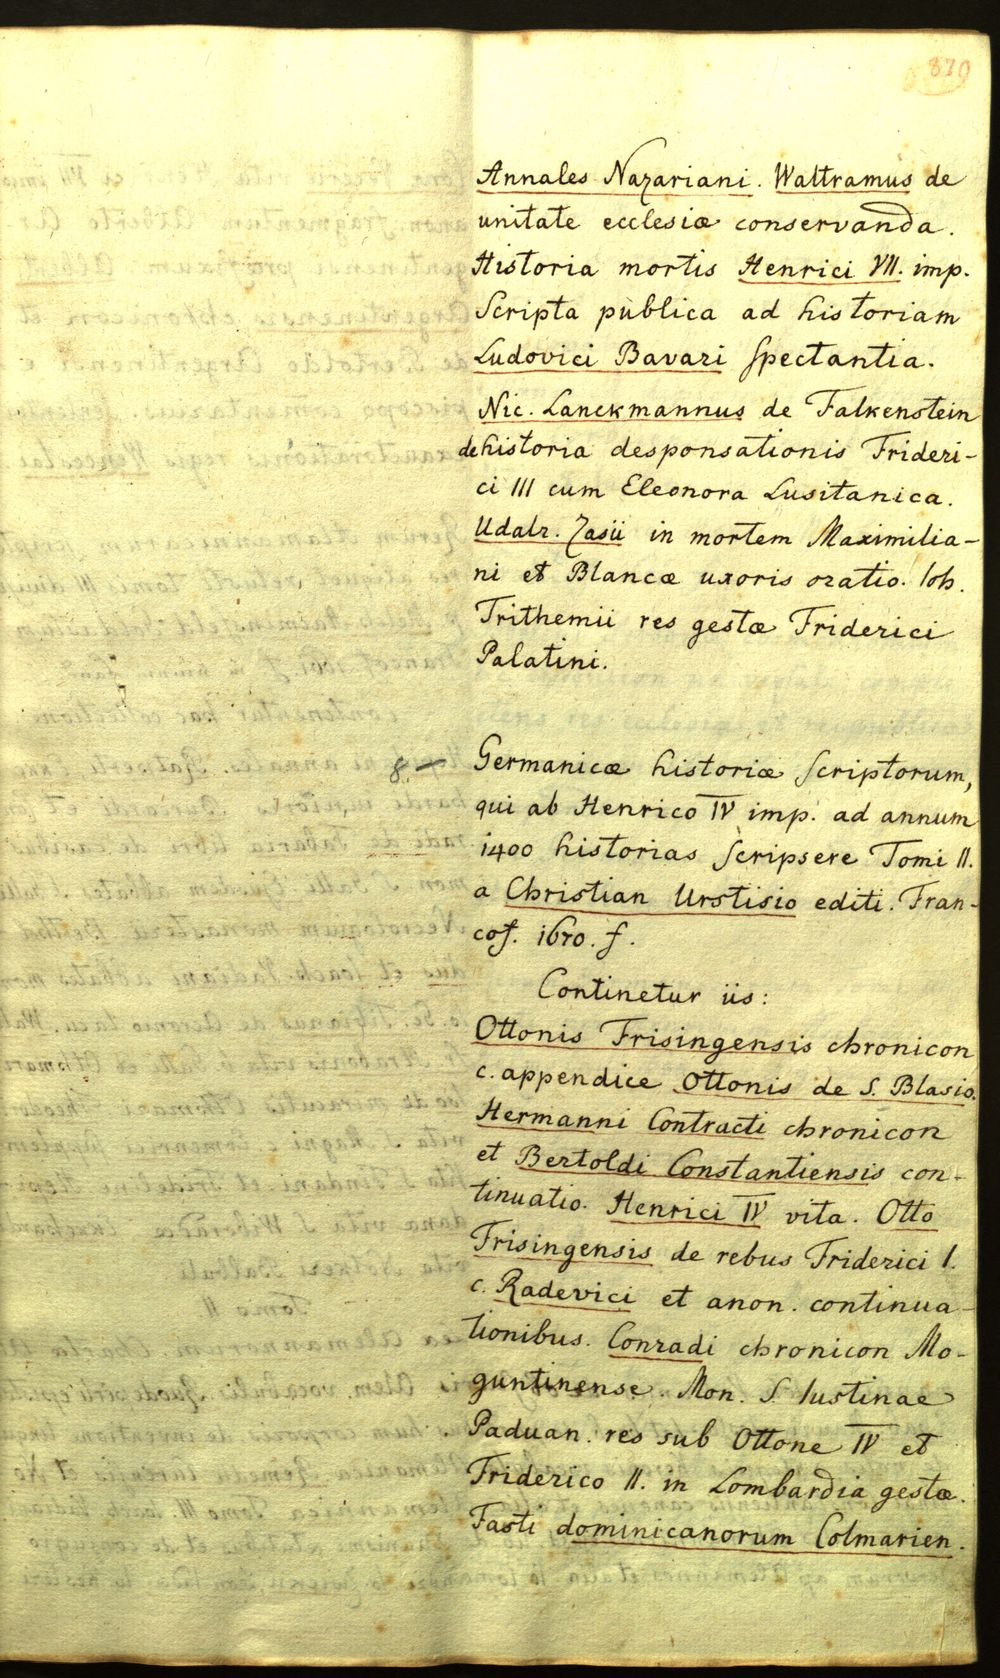 Annales Nazariani. Waltramus de
unitate ecclesiæ conservanda.
Historia mortis Henrici VII. imp.
Scripta publica ad historiam
Ludovici Bavari spectantia.
Nic. Lanckmannus de Falkenstein
de historia desponsationis Frideri-
ci III cum Eleonora Lusitanica.
Udalr. Zasii in mortem Maximilia-
ni et Blancæ uxoris oratio. Ioh.
Trithemii res gestæ Friderici
Palatini.
8. Germanicæ historiæ scriptorum,
qui ab Henrico IV imp. ad annum
1400 historias scripsere Tomi II.
a Christian Urstisio editi. Fran-
cof. 1670. f.
Continetur iis:
Ottonis Frisingensis chronicon
c. appendice Ottonis de S. Blasio.
Hermanni Contracti chronicon
et Bertoldi Constantiensis con-
tinuatio. Henrici IV vita. Otto
Frisingensis de rebus Friderici I.
c. Radevici et anon. continua-
tionibus. Conradi chronicon Mo-
guntinense. Mon. S. Iustinae
Paduan. res sub Ottone IV et
Friderico II. in Lombardia gestæ.
Fasti dominicanorum Colmarien.